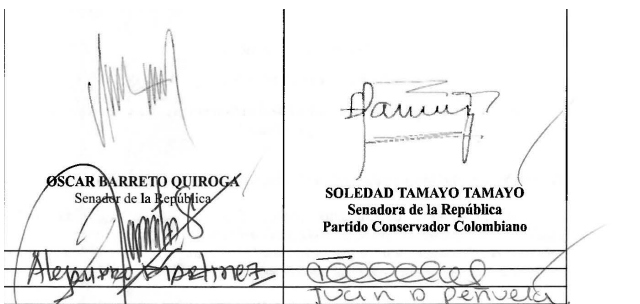 OSCAR BARRETO QUIROGA
Senador de la República
SOLEDAD TAMAYO TAMAYO
Senadora de la República
Partido Conservador Colombiano
Alejandro Martinez
Juan D Peñuela